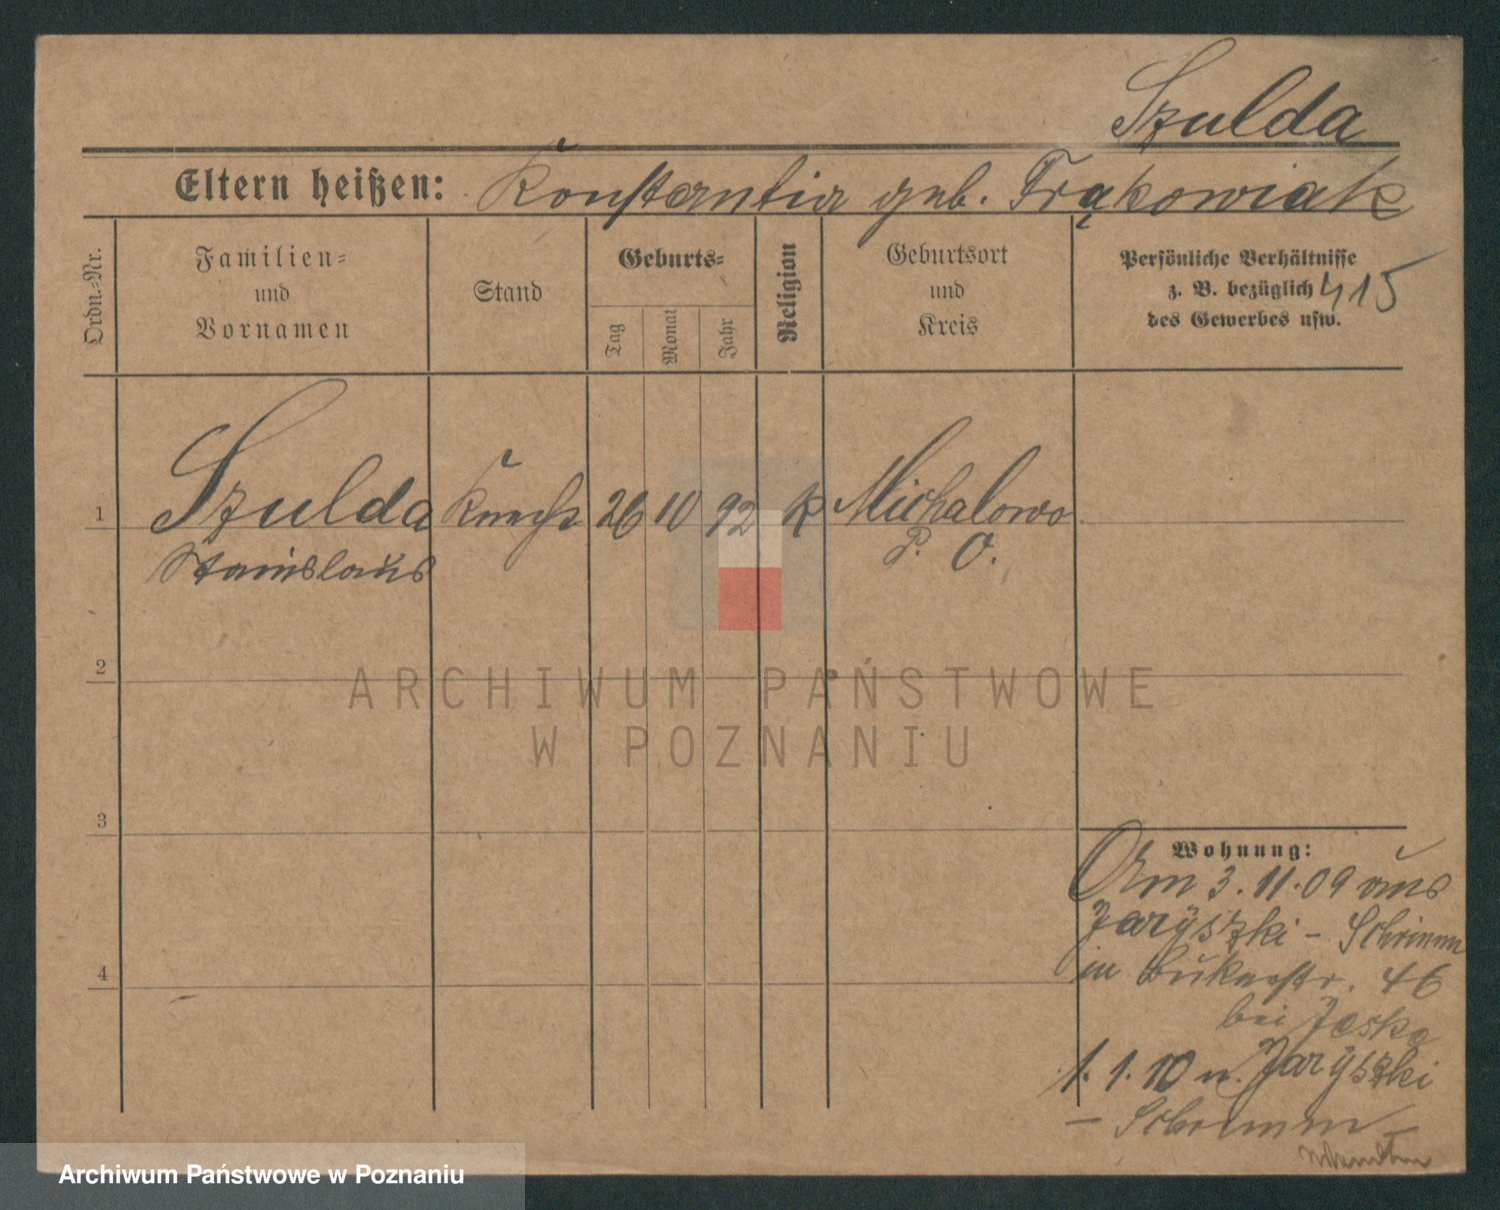 Szulda
Eltern heißen: Konstantia geb. Frąkowiak
Ordn.-Nr.
Familien-
und
Vornamen
Stand
Geburts-
Tag
Monat
Jahr
Religion
Geburtsort
und
Kreis
Persönliche Verhältnisse
z. B. bezüglich
des Gewerbes usw.
415
1 Szulda Knecht 26 10 92 K Michalowo
Stanislaus P. O.
2
3
4
ARCHIWUM PAŃSTWOWE
W POZNANIU
Wohnung:
Am 3.11.09 aus
Jaryszki - Schrimm
in Bukerstr. 46
bei Jeske
1.1.10 n. Jaryszki
- Schrimm -
Archiwum Państwowe w Poznaniu